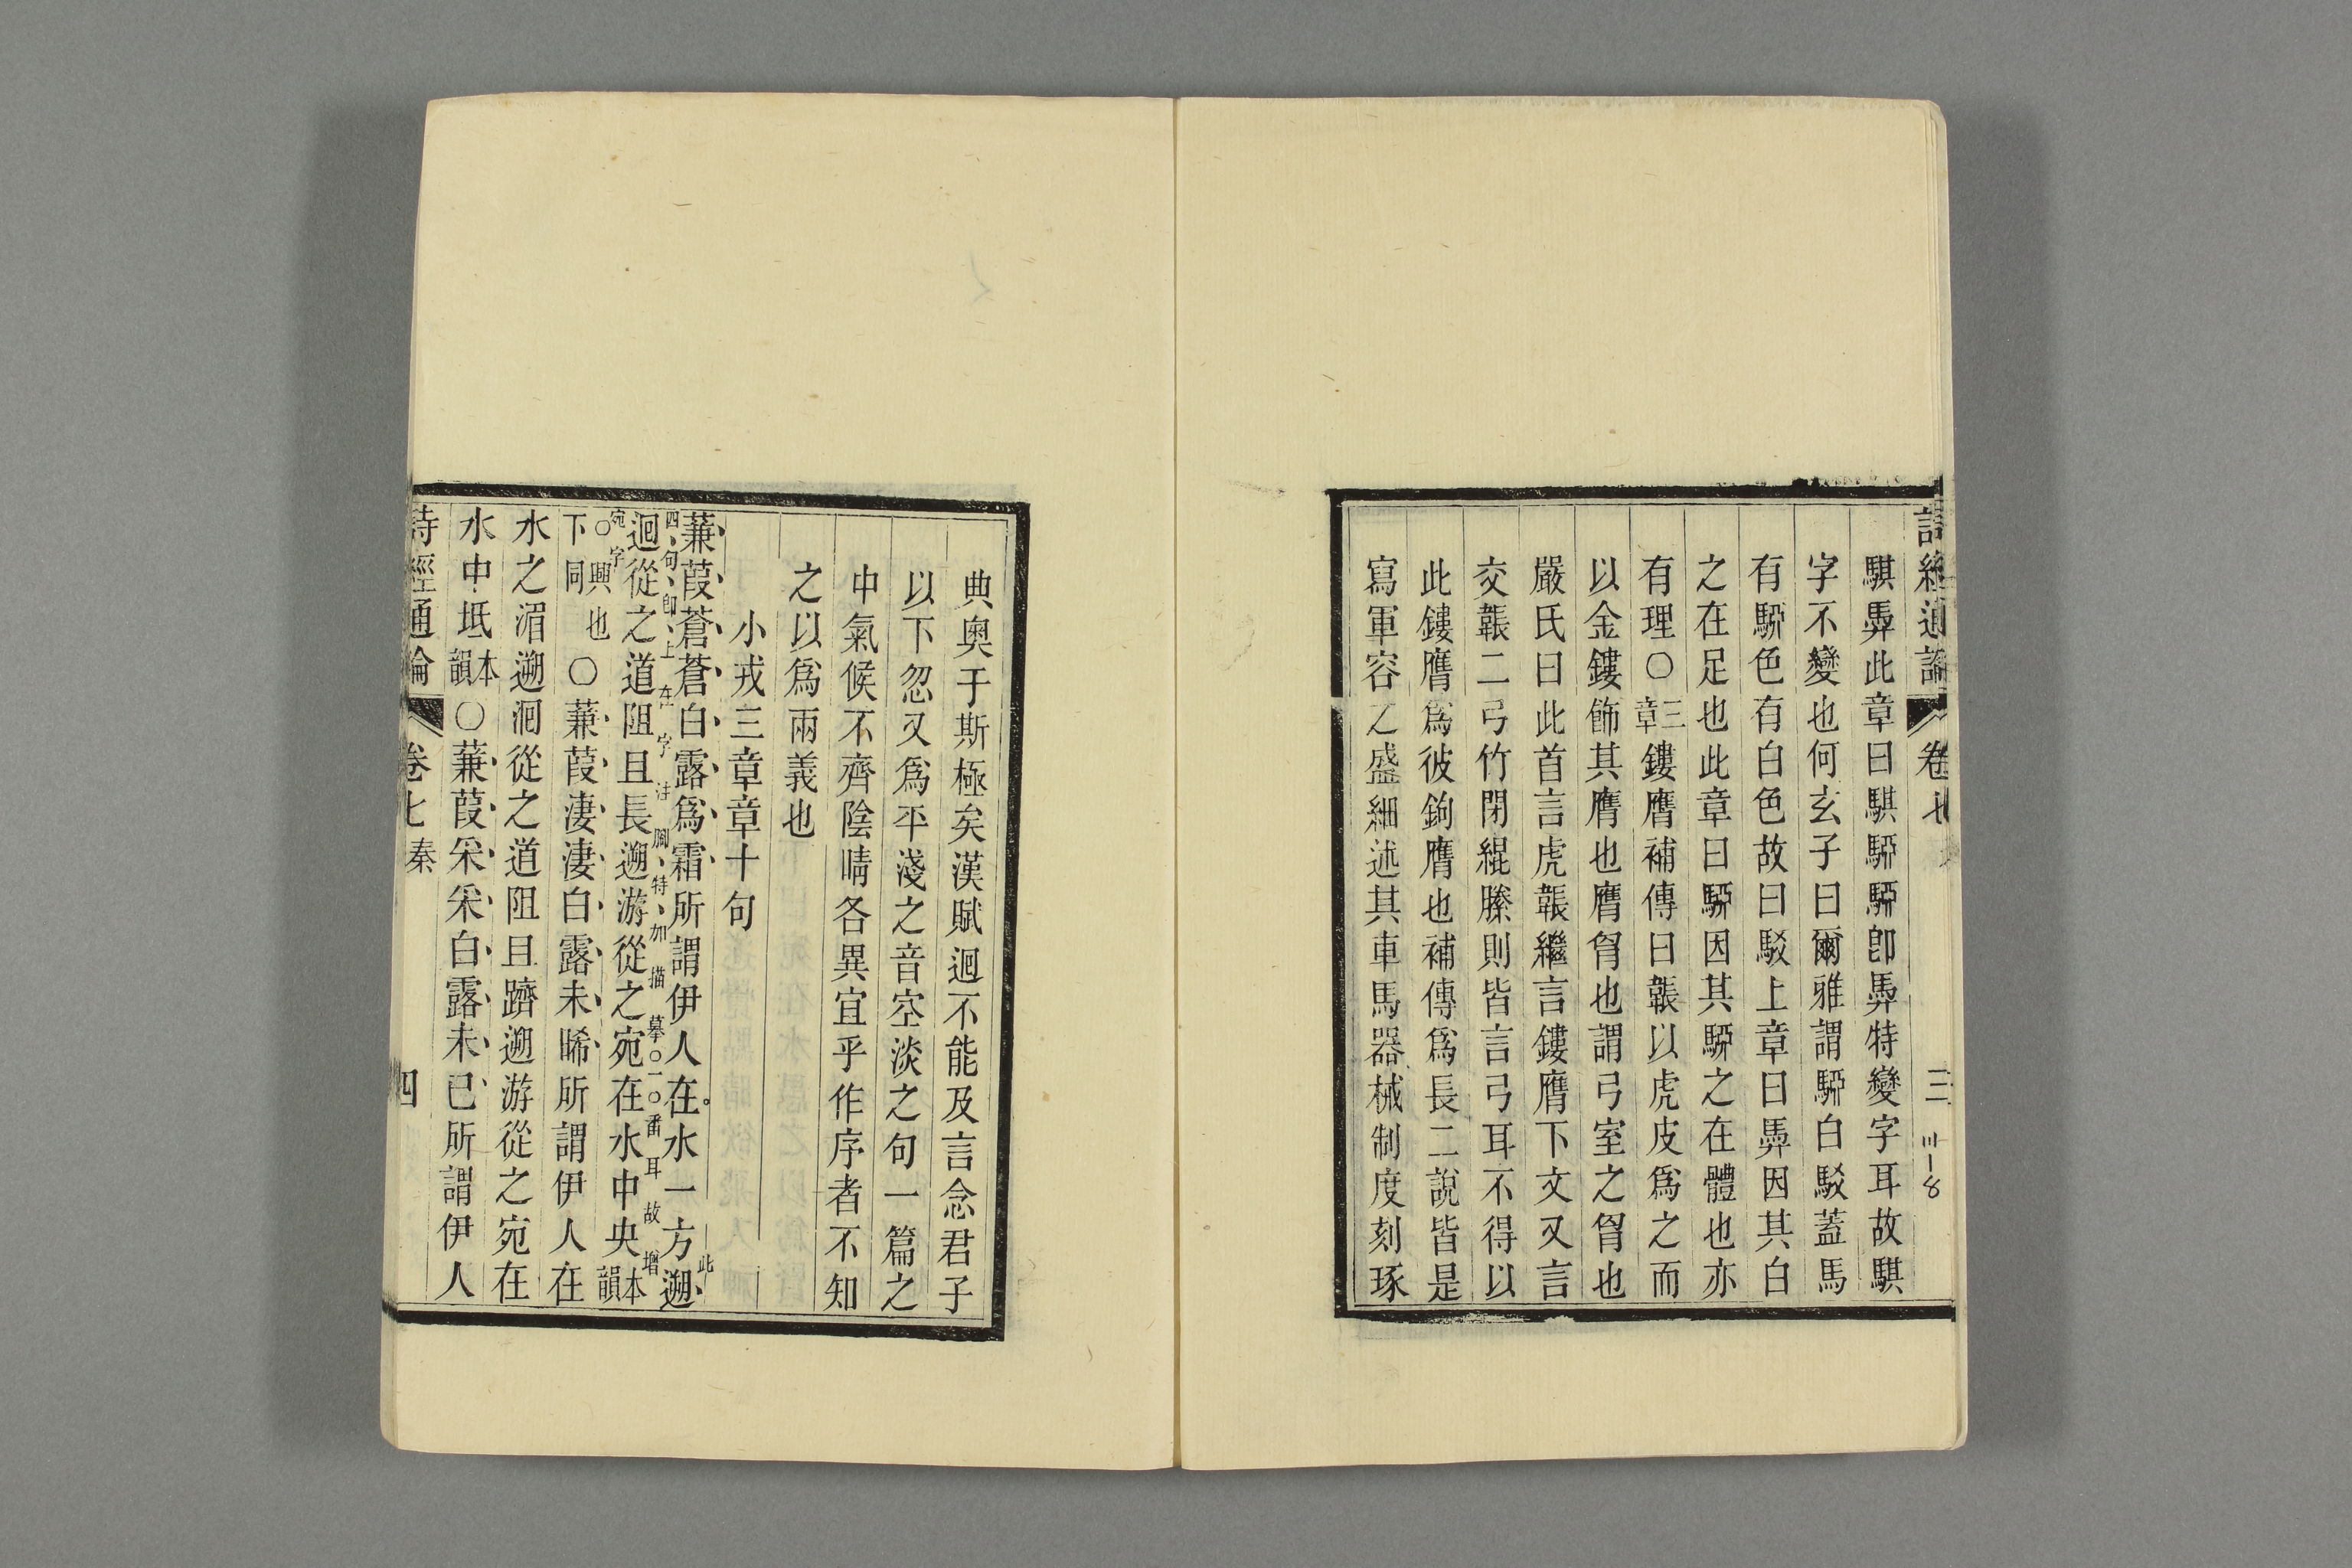 詩經通論 卷七 三 三-8
騏馵此章曰騏騧騧卽馵特變字耳故騏
字不變也何玄子曰爾雅謂騧白駁蓋馬
有騧色有白色故曰駁上章曰馵因其白
之在足也此章曰騧因其騧之在體也亦
有理〇三章鏤膺補傳曰韔以虎皮爲之而
以金鏤飾其膺也膺胷也謂弓室之胷也
嚴氏曰此首言虎韔繼言鏤膺下文又言
交韔二弓竹閉緄縢則皆言弓耳不得以
此鏤膺爲彼鉤膺也補傳爲長二說皆是
寫軍容之盛細述其車馬器械制度刻琢
典奧于斯極矣漢賦迴不能及言念君子
以下忽又爲平淺之音空淡之句一篇之
中氣候不齊陰晴各異宜乎作序者不知
之以爲兩義也
小戎三章章十句
蒹葭蒼蒼白露爲霜所謂伊人在水一方遡
此四句卽上在字注腳特加描摹〇一〇番耳故增宛字
迴從之道阻且長遡游從之宛在水中央本韻
〇興也下同〇蒹葭淒淒白露未晞所謂伊人在
水之湄遡洄從之道阻且躋遡游從之宛在
水中坻本韻〇蒹葭采采白露未已所謂伊人
詩經通論 卷七 秦 四